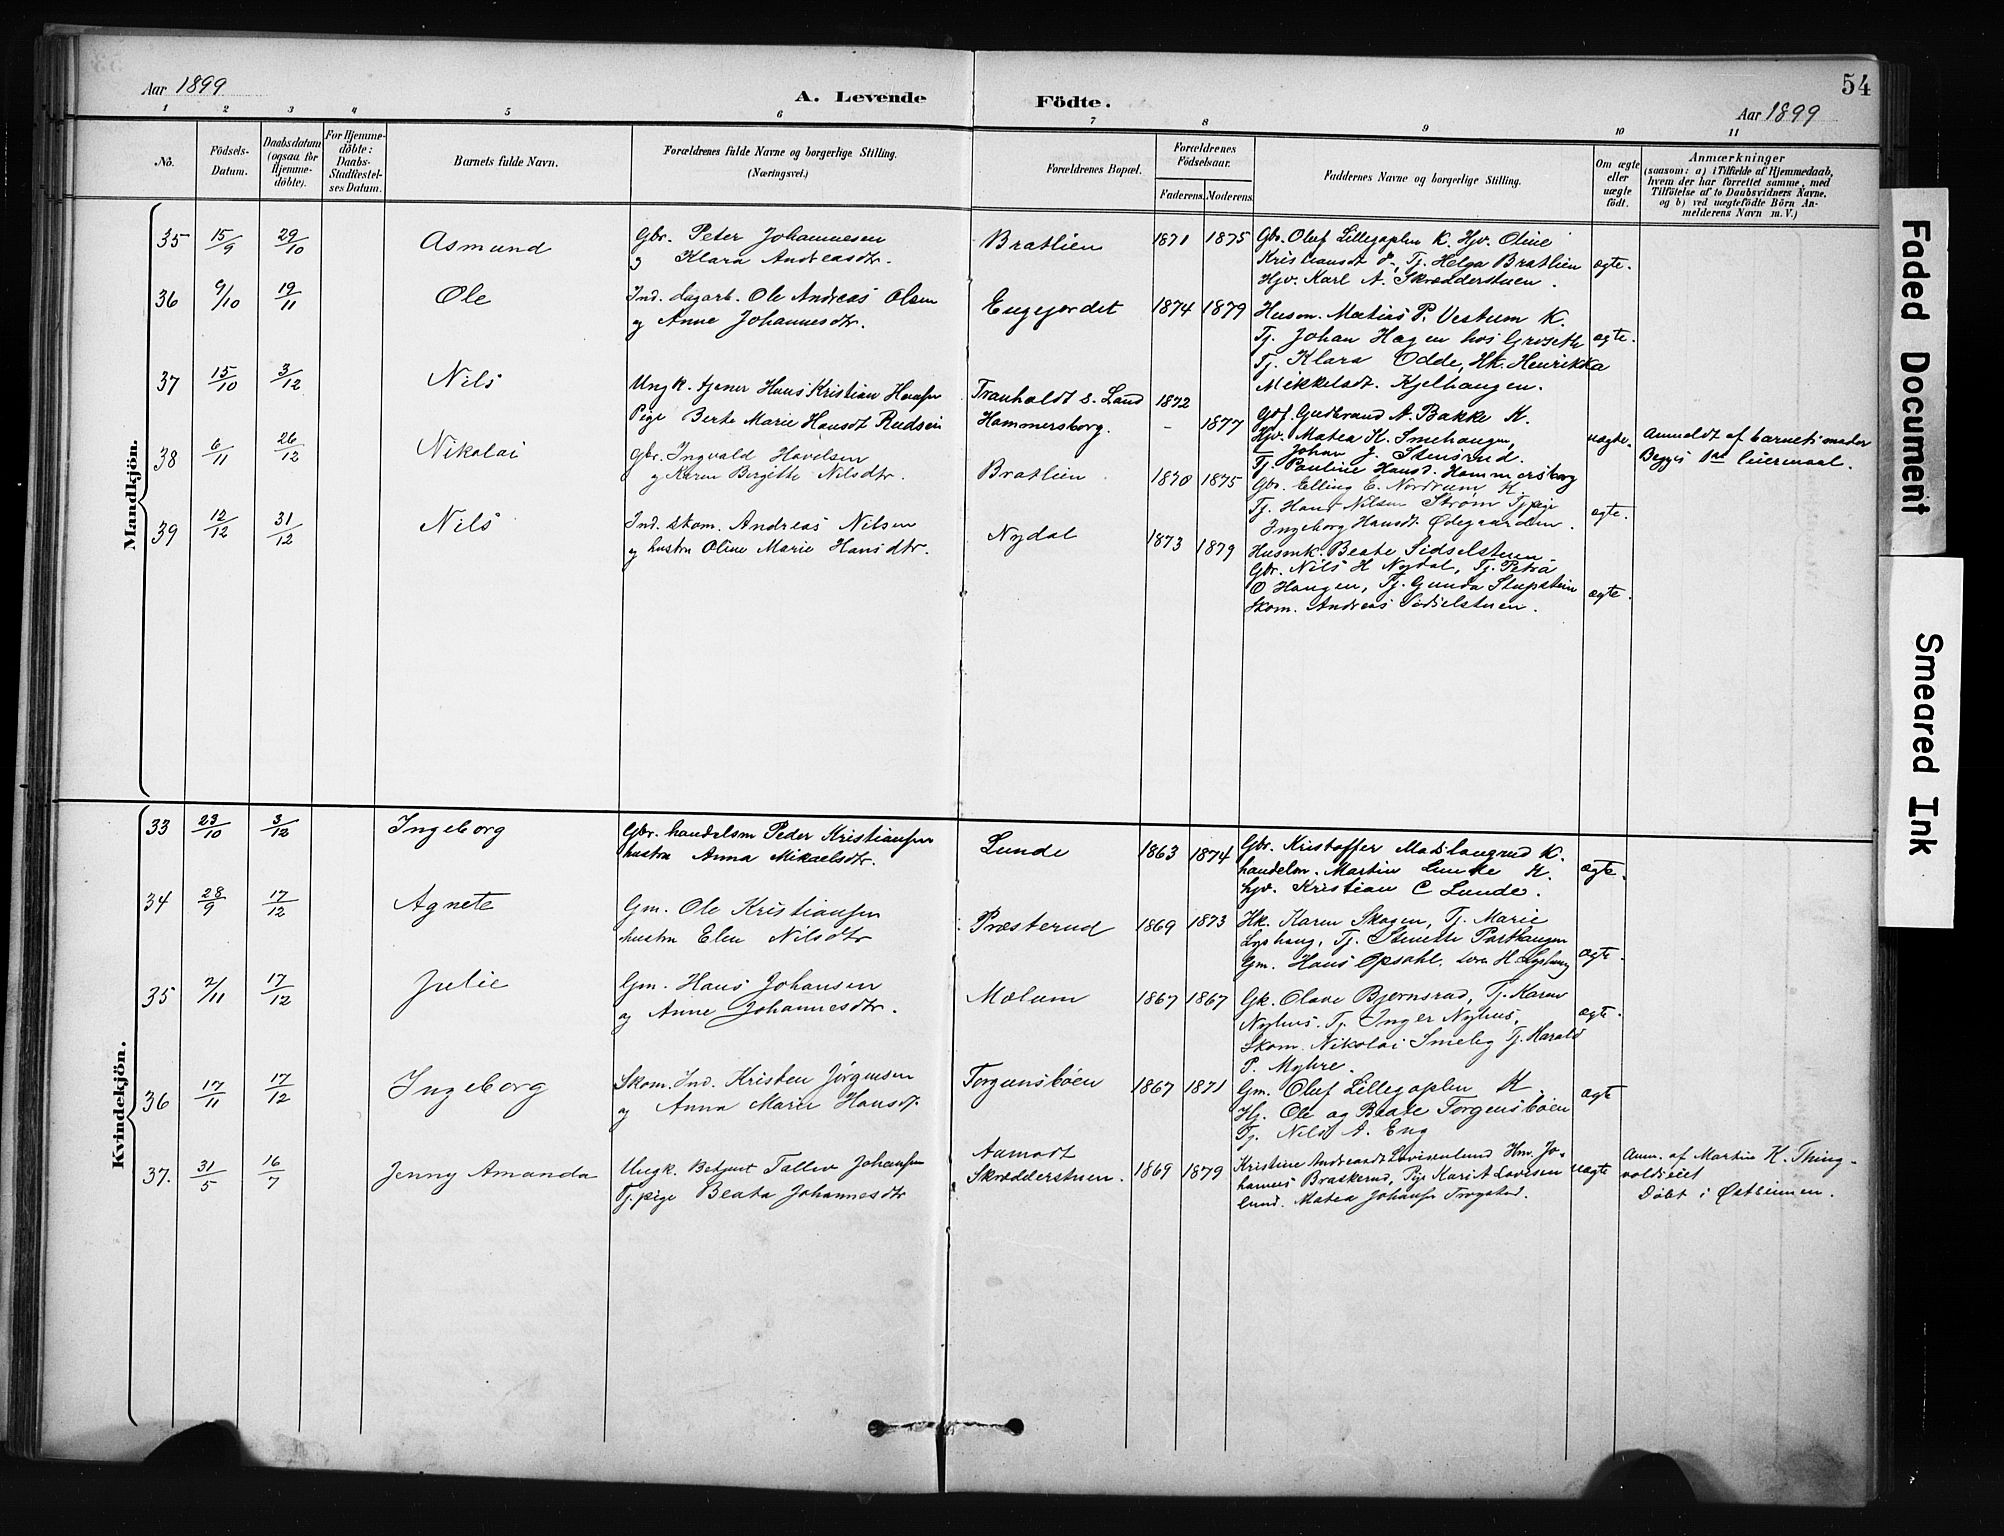 Aar 1899
A. Levende Födte.
54
Aar 1899
1 2 3 4 5 6 7 8 9 10 11
No.
Födsels-Datum.
Daabsdatum (ogsaa for Hjemme-döbte).
For Hjemme-döbte: Daabs-Stadfæstel-ses Datum.
Barnets fulde Navn.
Forældrenes fulde Navne og borgerlige Stilling. (Næringsvei.)
Forældrenes Bopæl.
Forældrenes Födselsaar.
Faderens. Moderens.
Faddernes Navne og borgerlige Stilling.
Om ægte eller uægte födt.
Anmærkninger
(saasom: a) i Tilfælde af Hjemmedaab,
hvem der har forrettet samme, med
Tilföielse af to Daabsvidners Navne,
og b) ved uægtefödte Börn An-
melderens Navn m. V.)
Mandkjön.
35 15/9 29/10 Asmund
Gbr. Peter Johannesen
og Klara Andreasdtr.
Bratlien 1871 1875
Gbr. Oluf Lillegaplen K. Hjv. Oline
Kristiansdt Tj. Helga Bratlien
Hjv. Karl A. Skrædderstuen.
ægte.
36 9/10 19/11 Ole
Ind. dagarb. Ole Andreas Olsen
og Anne Johannesdtr.
Engejordet 1874 1879
Husm. Matias P. Vestum K.
Tj. Johan Hagen hos Groseth
Tj. Klara Odde, Hk. Henrikka
Mikkelsdt. Kjelhaugen.
ægte.
37 15/10 3/12 Nils
Ungk. tjener Hans Kristian Hansen
Pige Berte Marie Hansdt Rudsen
Tranholdt S. Land 1872
Hammersborg. - 1877
Gbf. Gudbrand A. Bakke K.
Hjv. Matea H. Smehaugen,
Johan J. Stensrud.
Tj. Pauline Hansd. Hammersborg
uægte.
Anmeldt af barnets moder
Begges 1ste leiermaal.
38 6/11 26/12 Nikolai
Gbr. Ingvald Hovelsen
og Karen Birgitte Nilsdtr.
Bratlien 1870 1875
Gbr. Elling E. Nordrum K.
Tj. Hans Nilsen Strøm Tjpige
Ingeborg Hansdt Ødegaarden.
ægte.
39 12/12 31/12 Nils
Ind. skom. Andreas Nilsen
og hustru Oline Marie Hansdtr.
Nydal 1873 1879
Husmk. Beate Sidselstuen
Gbr. Nils H Nydal, Tj. Petra
O Haugen, Tj. Gunda Stupstein
Skom. Andreas Sidselstuen.
ægte.
Kvindekjön.
33 23/10 3/12 Ingeborg
Gbr. handelsm Peder Kristiansen
hustru Anna Mikaelsdtr.
Lunde 1863 1874
Gbr. Kristoffer Matslangrud K.
handelsm. Martin Lunde K.
Hjv. Kristian C Lunde.
ægte.
34 28/9 17/12 Agnete
Gm. Ole Kristiansen
hustru Elen Nilsdtr
Præsterud 1869 1873
Hk. Karen Skogen, Tj. Marie
Lyshaug, Tj. Parthaugen
Gm. Hans Opsahl. H. Lyshaug
ægte.
35 2/11 17/12 Julie
Gm. Hans Johansen
og Anne Johannesdtr.
Mælum 1867 1867
Gk. Olave Bjernsrud, Tj. Karen
Nyhus. Tj. Inger Nyhus,
Skom. Nikolai Smeby Tj. Harald
P. Myhre.
ægte.
36 17/11 17/12 Ingeborg
Skom. Ind. Kristen Jørgensen
og Anna Marie Hansdt.
Torgunsbøen 1867 1871
Gm. Oluf Lillegaplen K.
Hj. Ole og Beate Torgunsbøen
Tj. Nils A. Eng
ægte
37. 31/5 16/7 Jenny Amanda
Ungk. Betjent Tallev Johansen
Tj. pige Beata Johannesdtr
Aamodt
Skrædderstuen. 1869 1879
Kristine Andreasdt Lovisenlund Hm. Jo-
hannes Braskerud, Pige Kari A Lovisen
lund. Matea Johansen Trøgstad.
uægte
Anm. af Martin K. Thing-
voldseiet
Døbt i Østsinnen.
Faded Document
Smeared Ink